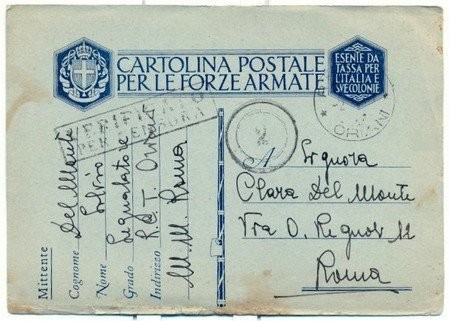 CARTOLINA POSTALE
PER LE FORZE ARMATE
ESENTE DA
TASSA PER
L'ITALIA E
SVE COLONIE
VERIFICATO
PER CENSURA
ORIANI
2
A Signora
Clara Del Monte
Via O. Regnoli 12
Roma
Mittente
Cognome Del Monte
Nome Silvio
Grado Segnalatore
Indirizzo R.C.T. Oriani
M. M. Roma